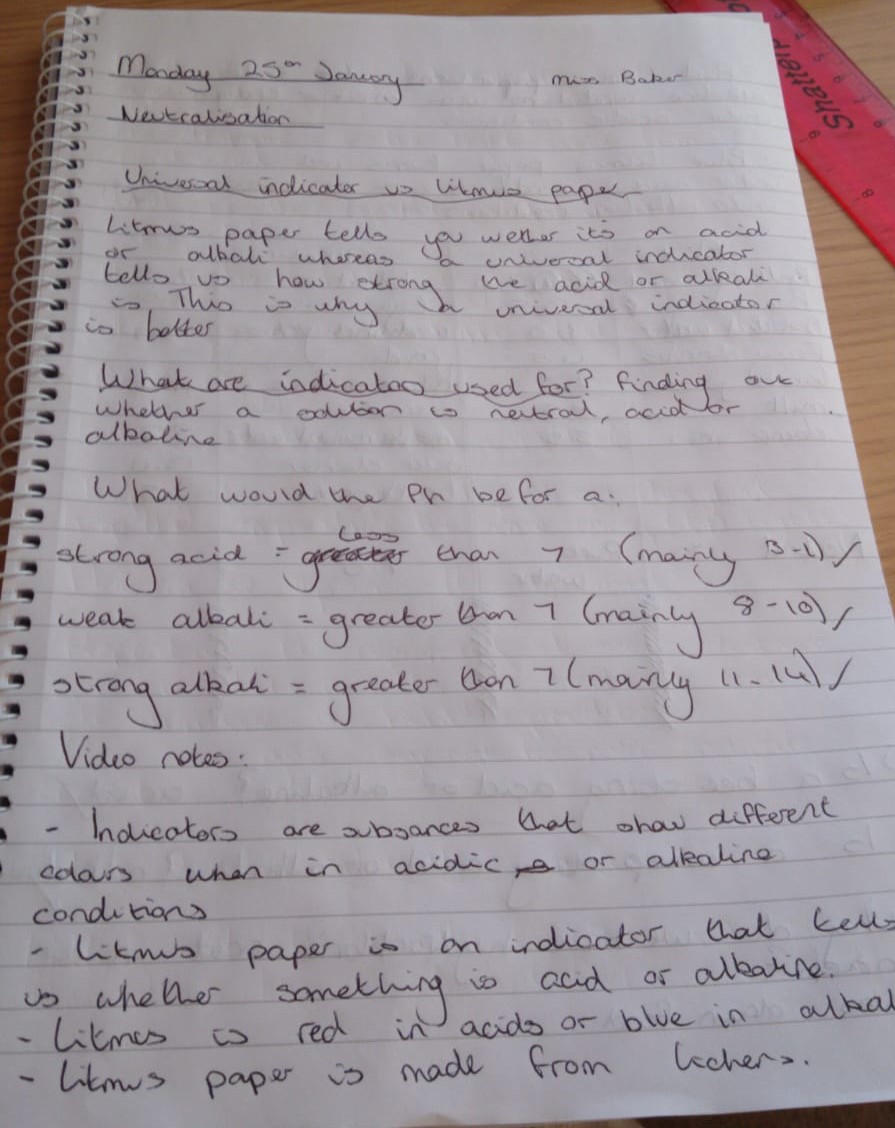 Monday 25th January Miss Baker
Neutralisation
Universal indicator vs litmus paper
Litmus paper tells you wether its an acid
or albali whereas a universal indicator
tells us how strong the acid or alkali
is This is why a universal indicator
is better
What are indicators used for? finding out
whether a solution is neutral, acid or
alkaline
What would the Ph be for a:
less
strong acid = greater than 7 (mainly 3-1) /
weak alkali = greater than 7 (mainly 8-10) /
strong alkali = greater than 7 (mainly 11-14) /
Video notes:
- Indicators are subsances that show different
colours when in acidic or alkaline
conditions
- litmus paper is an indicator that tells
us whether something is acid or alkaline.
- Litmus is red in acids or blue in alkal
- litmus paper is made from lichens.
Shatter